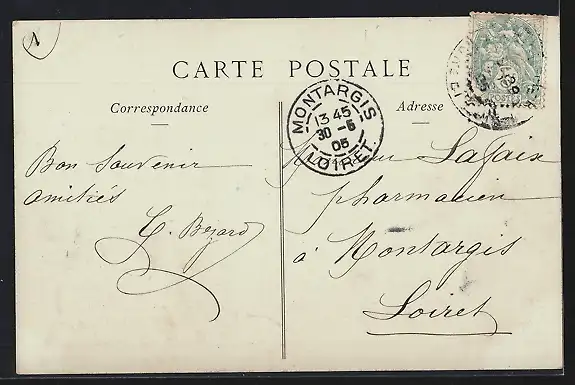 1
CARTE POSTALE
Correspondance
Adresse
MONTARGIS
13 45
30 -6
05
LOIRET
POSTES
Bon Souvenir
Amitiés
Monsieur Lafaix
pharmacien
à Montargis
Loiret